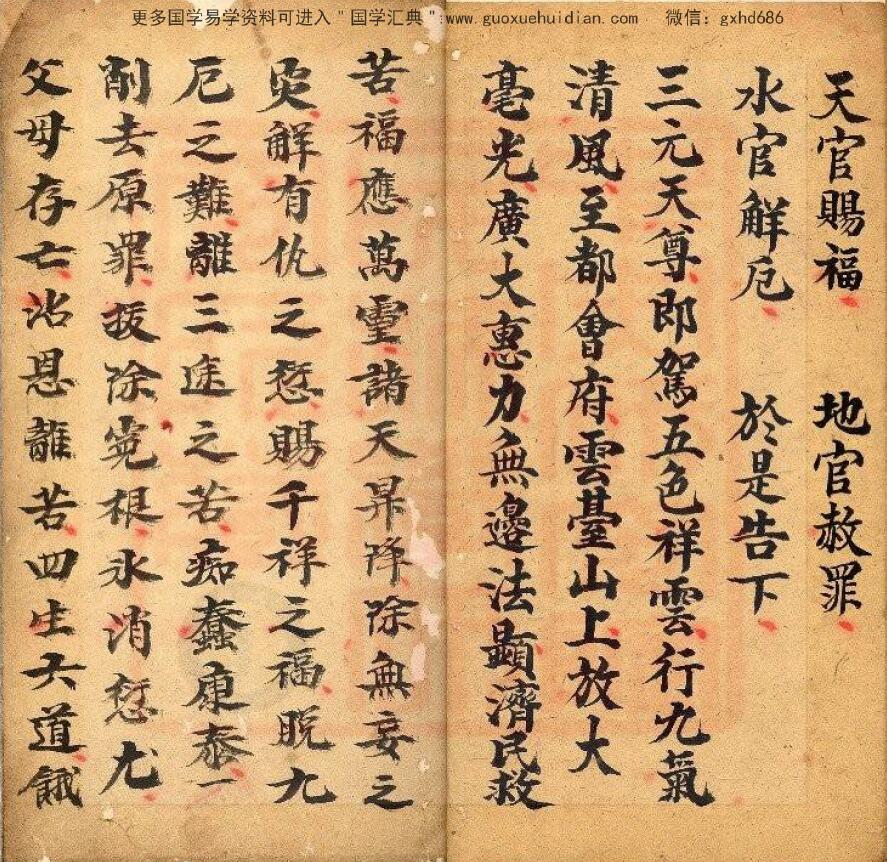 更多国学易学资料可进入＂国学汇典＂:www.guoxuehuidian.com 微信：gxhd686
天官賜福 地官赦罪
水官解厄 於是告下
三元天尊即駕五色祥雲行九氣
清風至都會府雲臺山上放大
毫光廣大惠力無邊法顯濟民救
苦福應萬靈諸天昇降除無妄之
灾解有仇之愆賜千祥之福脱九
厄之難離三途之苦痴蠢康泰一
削去原罪拔除冤根氷消愆尤
父母存亡沾恩離苦四生六道餓